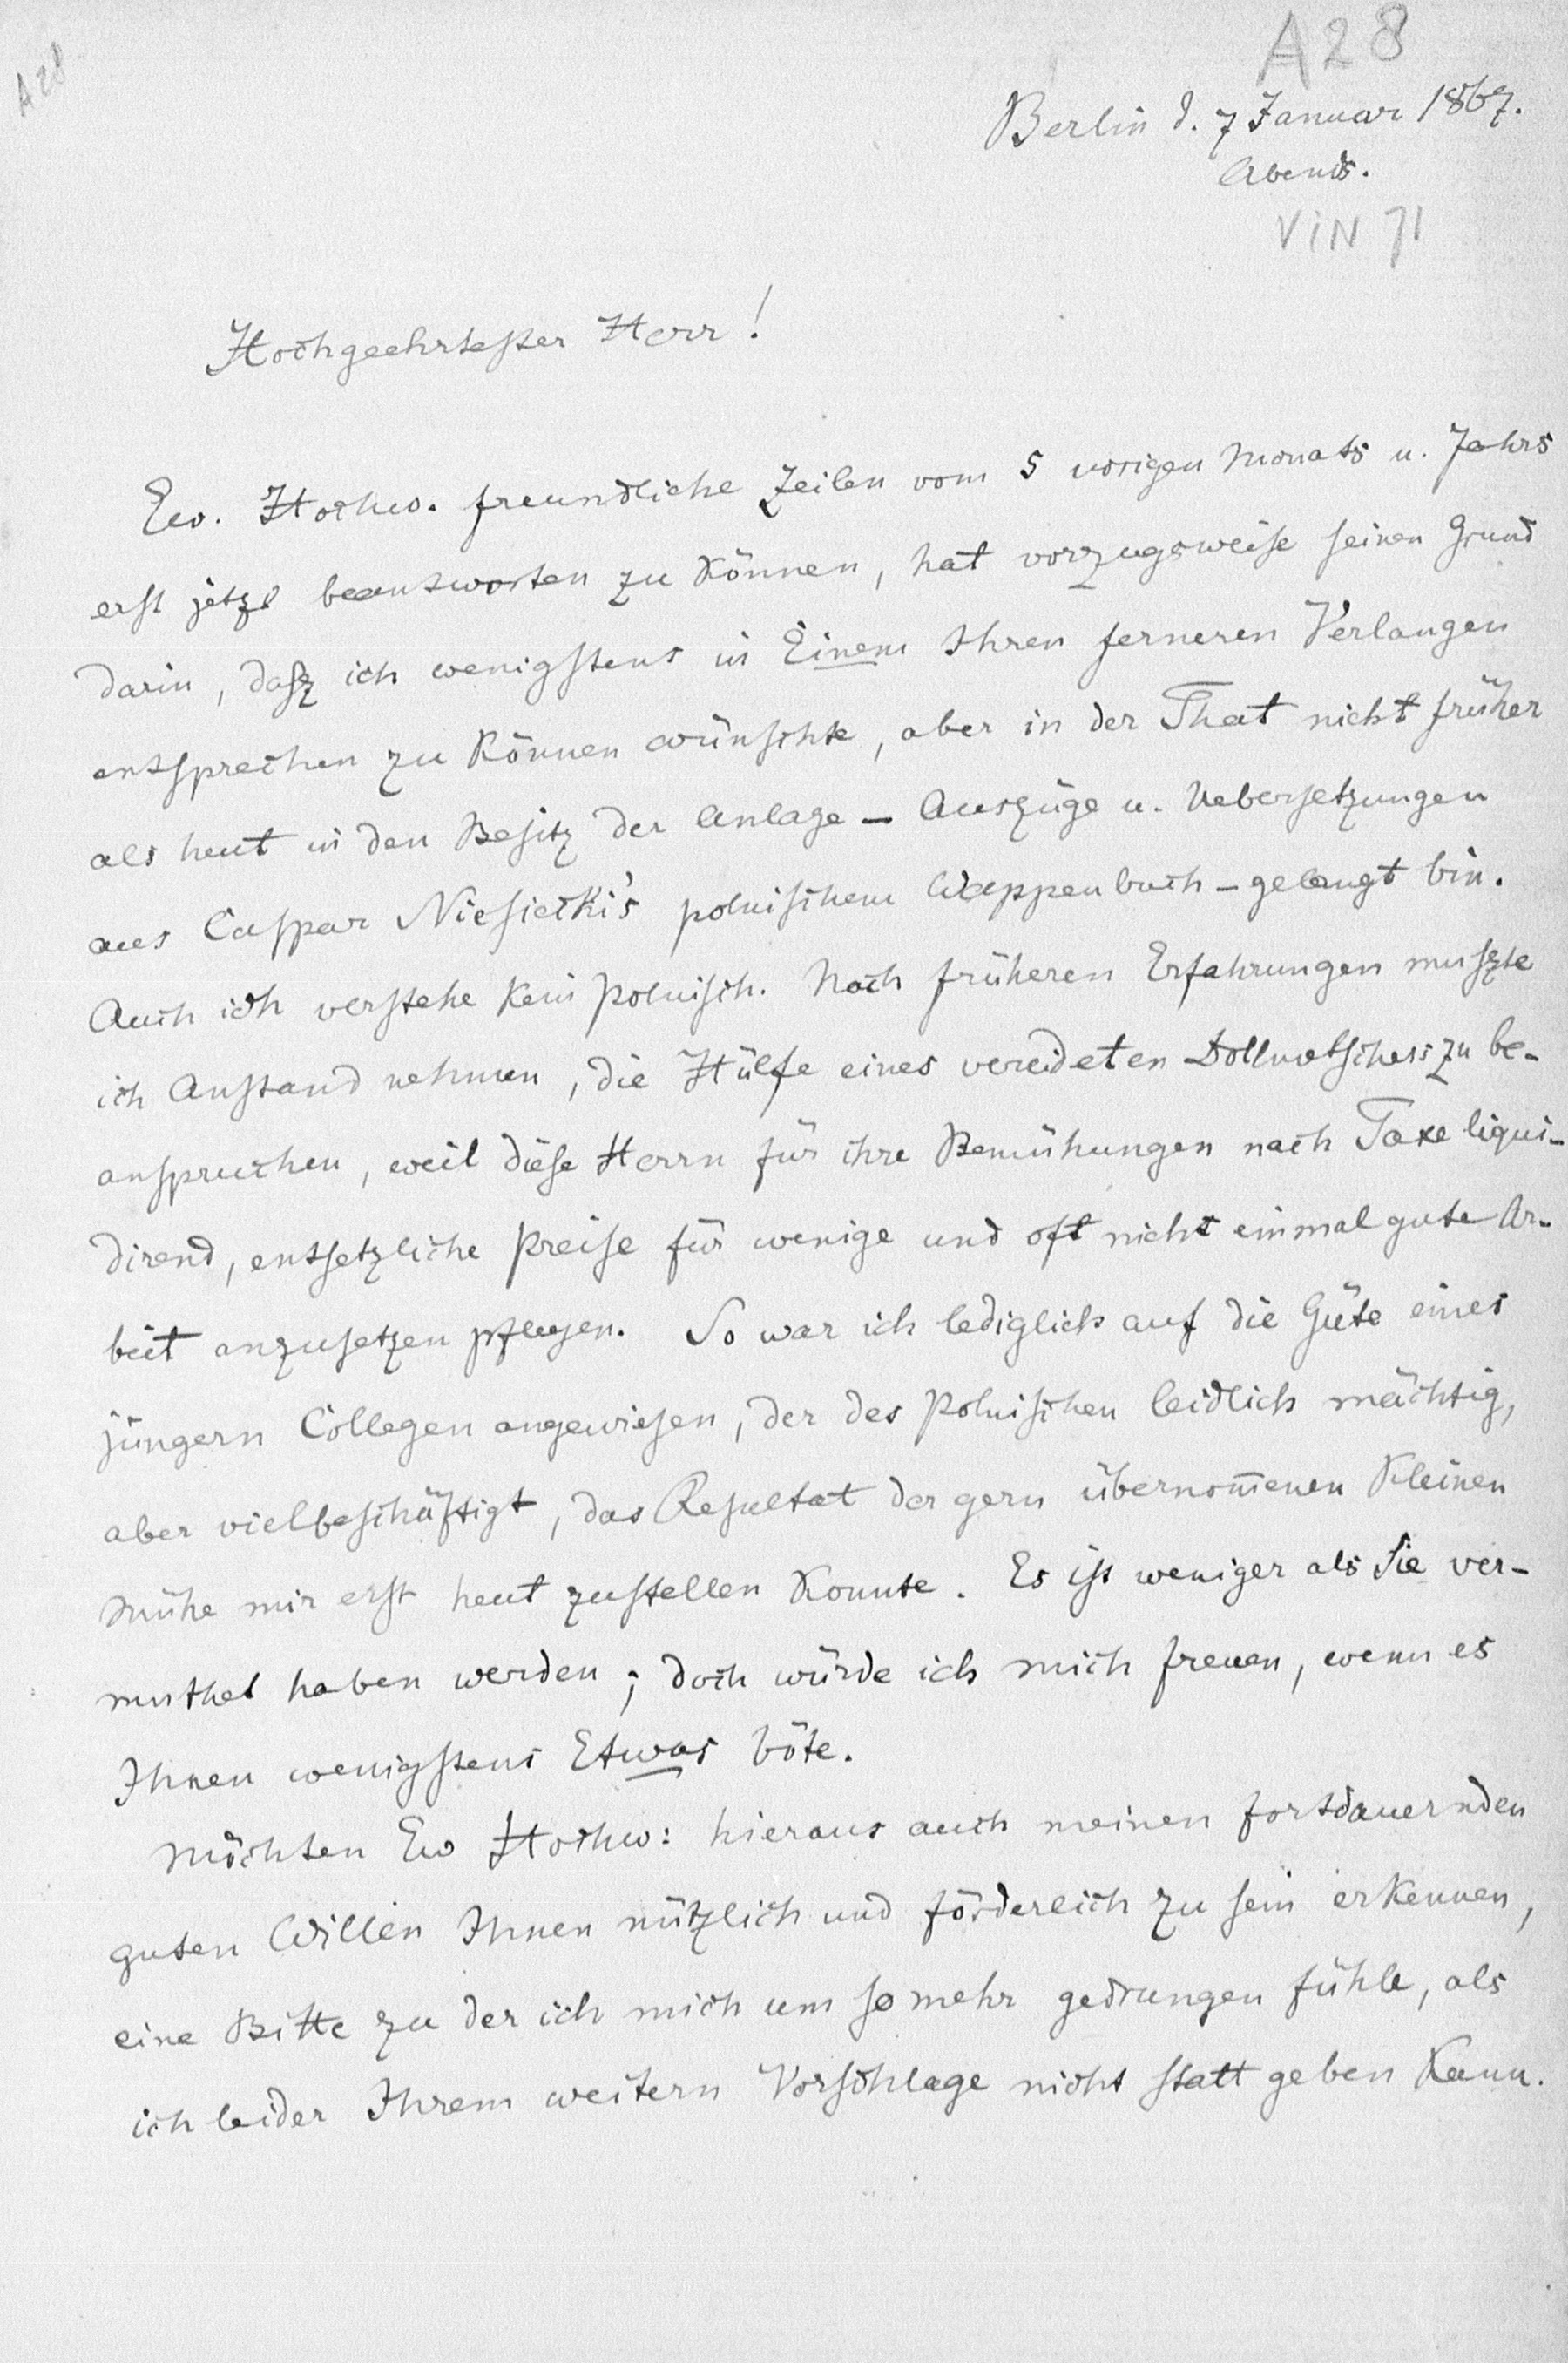 A 28
A28
Berlin d. 7 Januar 1867.
Abends.
VIN 71
Hochgeehrtester Herr!
Ew. Hochw. freundliche Zeilen vom 5 vorigen Monats u. Jahrs
erst jetzt beantworten zu können, hat vorzugsweise seinen Grund
darin, dasz ich wenigstens in Einem Ihren ferneren Verlangen
entsprechen zu können wünschte, aber in der That nicht früher
als heut in den Besitz der Anlage – Auszüge u. Uebersetzungen
aus Caspar Niesiecki's polnischem Wappenbuch – gelangt bin.
Auch ich verstehe kein Polnisch. Nach früheren Erfahrungen muszte
ich Anstand nehmen, die Hülfe eines vereideten Dollmetschers zu be-
anspruchen, weil diese Herrn für ihre Bemühungen nach Taxe liqui-
dirend, entsetzliche Preise für wenige und oft nicht einmal gute Ar-
beit anzusetzen pflegen. So war ich lediglich auf die Güte eines
jüngern Collegen angewiesen, der des Polnischen leidlich mächtig,
aber vielbeschäftigt, das Resultat der gern übernom̄enen kleinen
Mühe mir erst heut zustellen konnte. Es ist weniger als Sie ver-
muthet haben werden; doch würde ich mich freuen, wenn es
Ihnen wenigstens Etwas böte.
Möchten Ew Hochw: hieraus auch meinen fortdauernden
guten Willen Ihnen nützlich und förderlich zu sein erkennen,
eine Bitte zu der ich mich um so mehr gedrungen fühle, als
ich leider Ihrem weitern Vorschlage nicht statt geben kann.